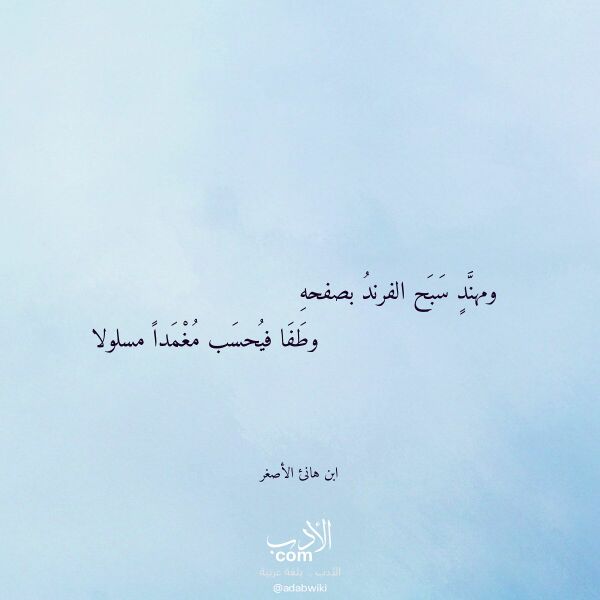 ومهنَّدٍ سَبَح الفرندُ بصفحهِ
وطَفَا فيُحسَب مُغْمَداً مسلولا
ابن هانئ الأصغر
الأدب
com
الأدب .. بلغة عربية
@adabwiki